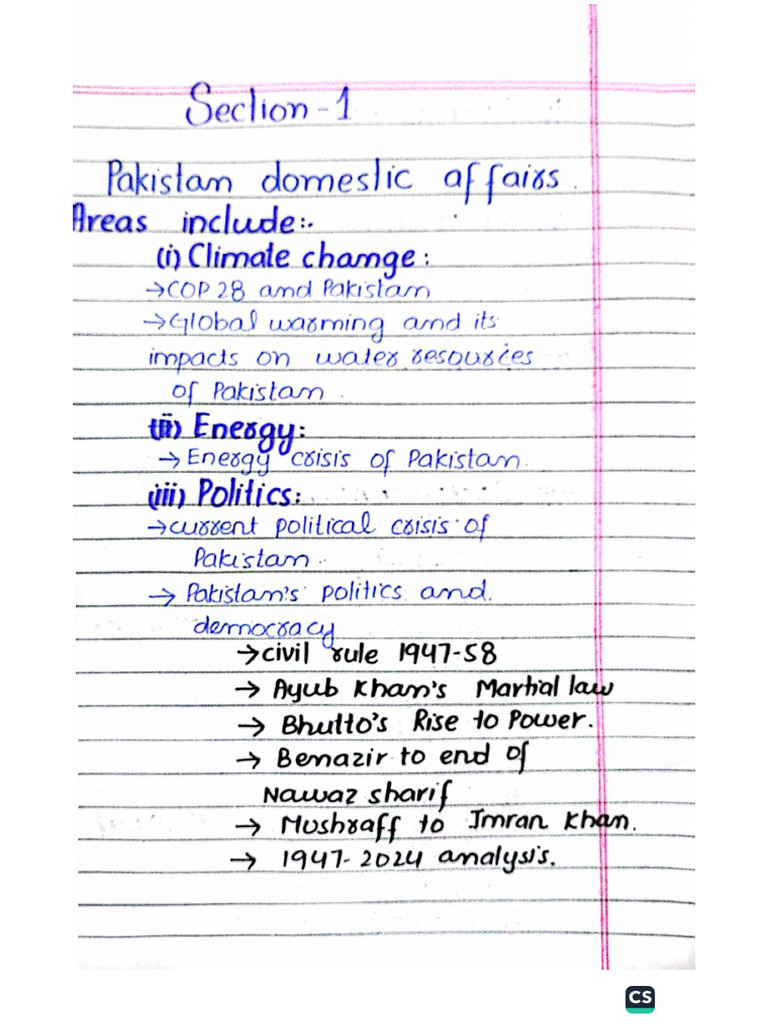 Section-1
Pakistan domestic affairs.
Areas include:-
(i) Climate change:
→COP 28 and Pakistan
→Global warming and its
impacts on water resources
of Pakistan.
(ii) Energy:
→ Energy crisis of Pakistan.
(iii) Politics:
→current political crisis of
Pakistan.
→ Pakistan's politics and
democracy
→civil rule 1947-58
→ Ayub Khan's Martial law
→ Bhutto's Rise to Power.
→ Benazir to end of
Nawaz sharif
→ Mushraff to Imran Khan.
→ 1947-2024 analysis.
CS